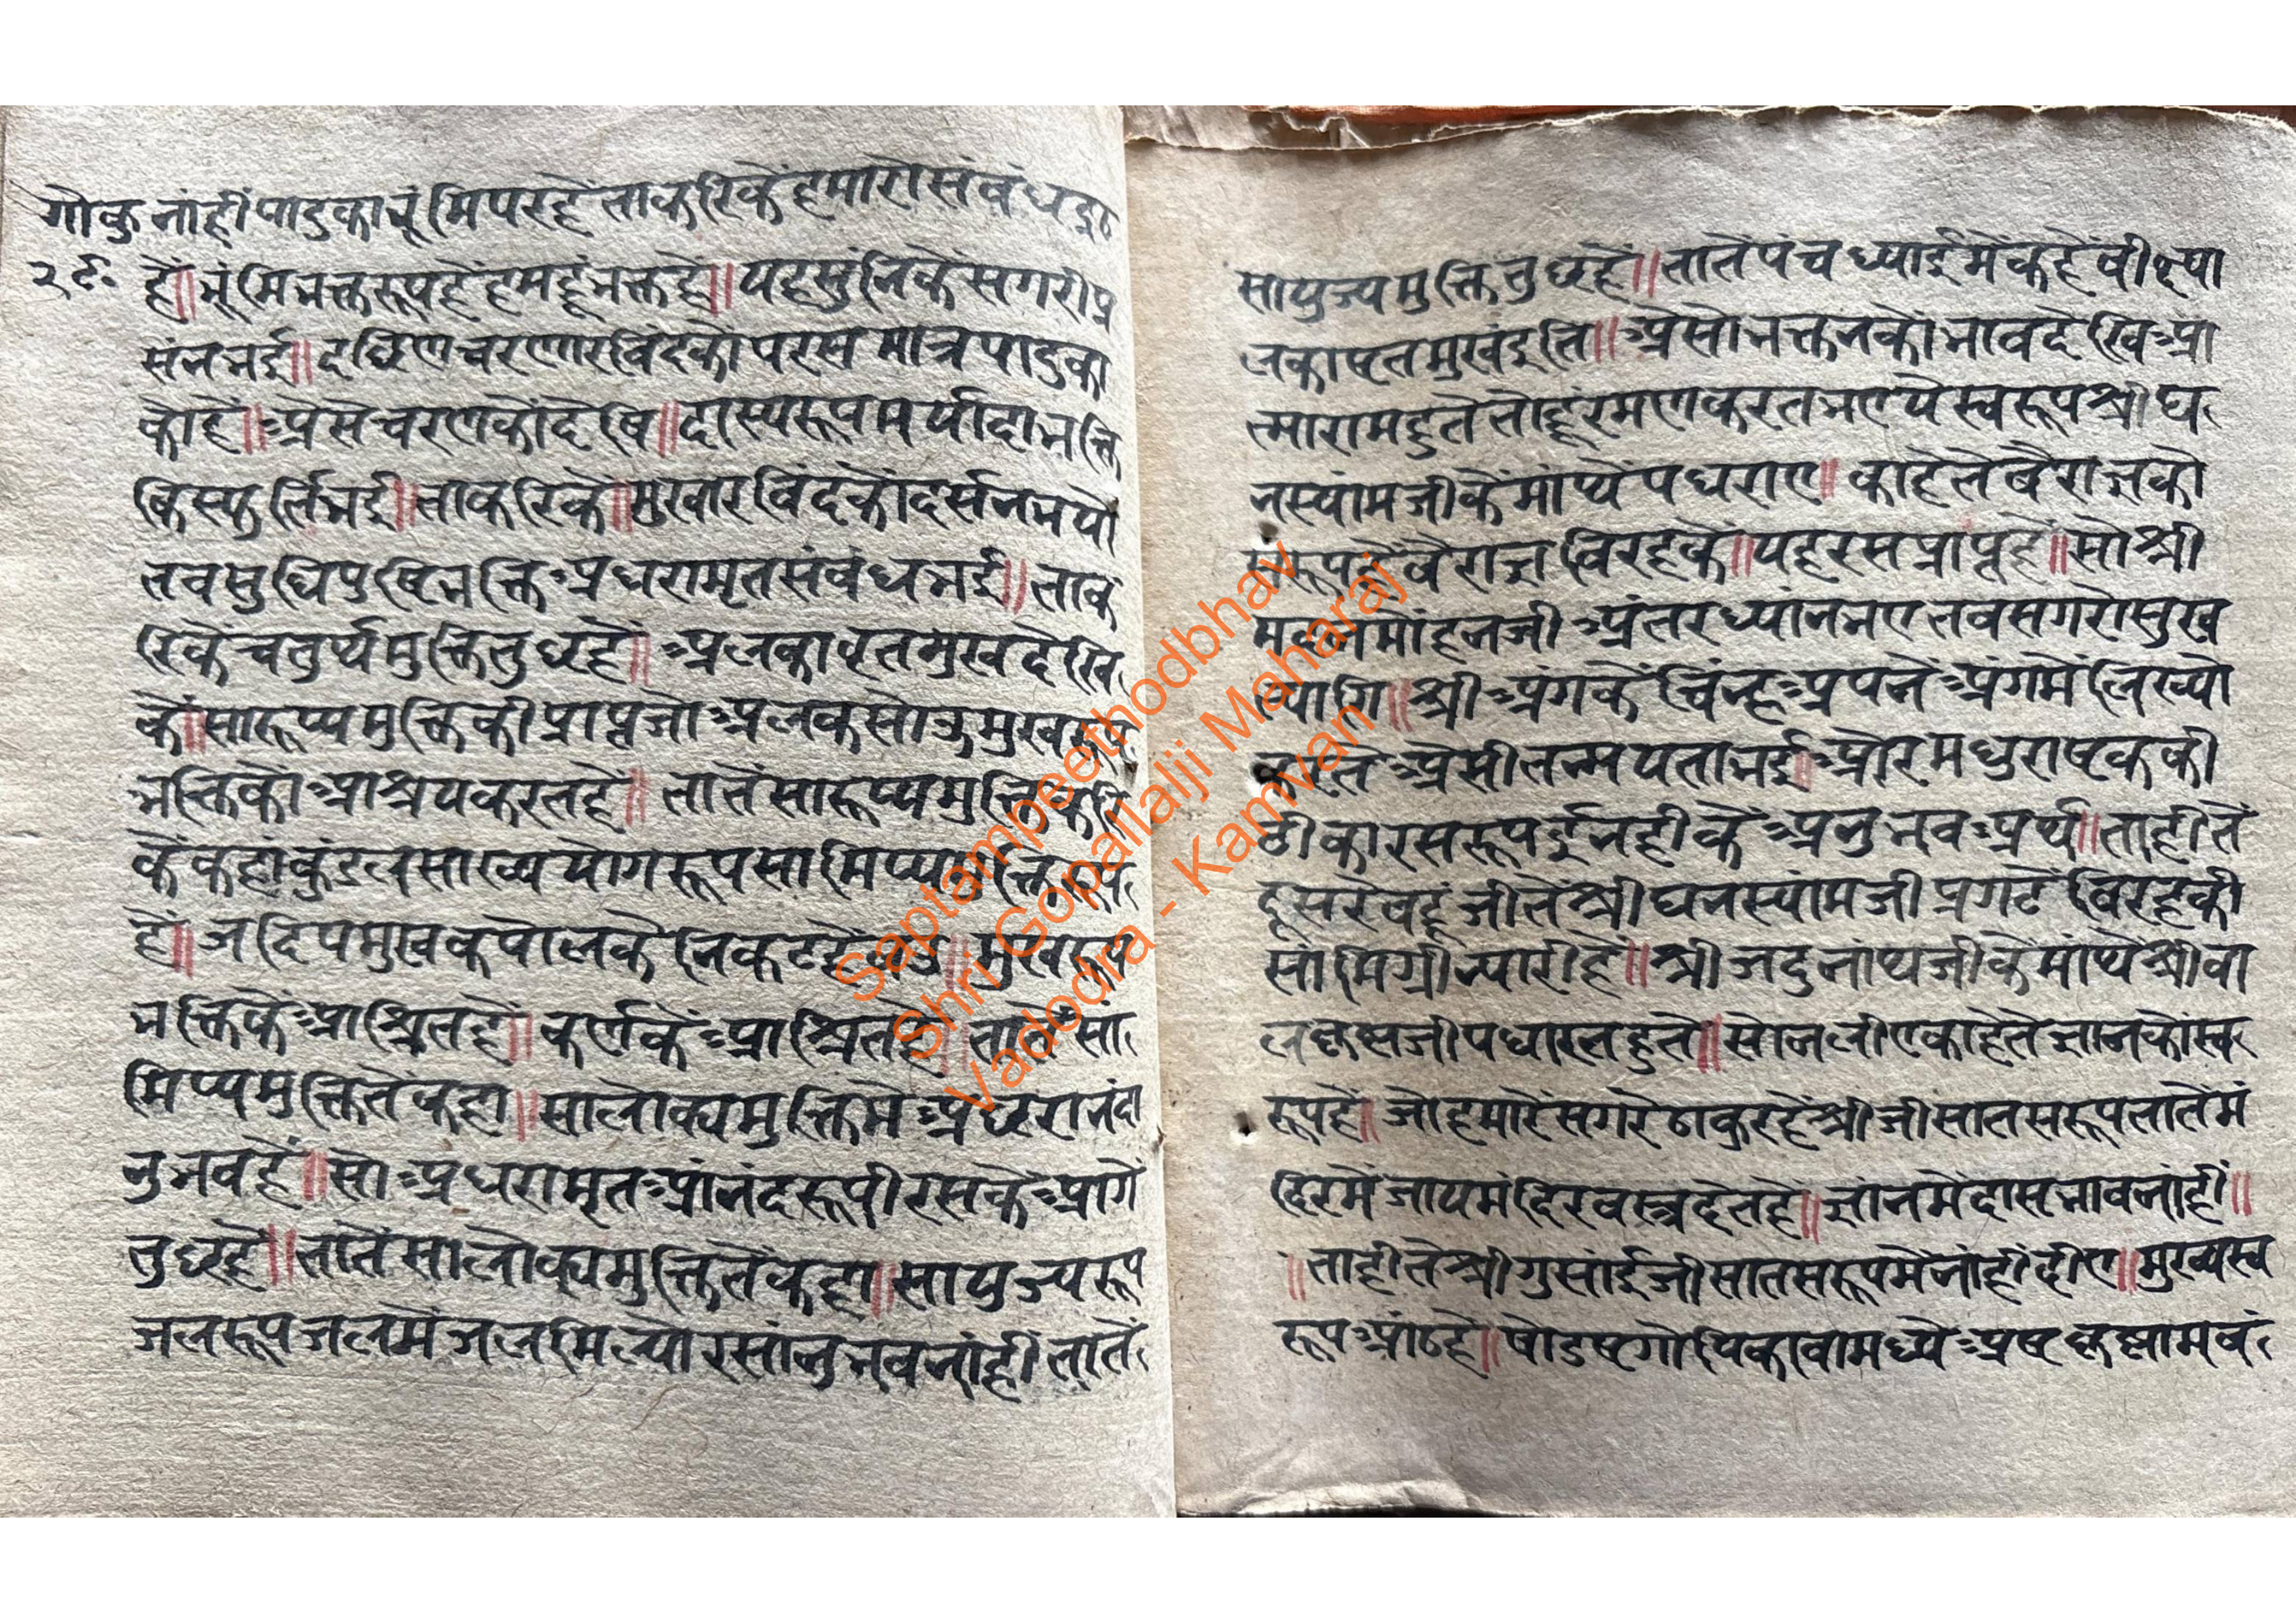 गोकु नांहीं पादुका भूंमि पर हें ताकरिकें हमारो संबंध हु
२९
हें॥ भूंमि भक्तरूप हें हमहूं भक्त हें॥ यह सुंनिकें सगरी प्र
संन भई॥ दछिण चरणारविंदको परस मात्र पादुका
कों हें॥ अैसे चरणकों देखि॥ दास्यरूप मर्यादा भक्ति
कि स्फुर्ति भई॥ ताकरिकें॥ मुखारविंदकों दर्सन भयो
तब सुधि पुष्टि भक्ति अधरामृत संबंध भई॥ ताक
रिकें चतुर्थ मुक्ति तुछ हें॥ अलकावृत मुख देखि
कें॥ सारूप्य मुक्ति की प्राप्त जो अलक सोऊ मुखरूप
भक्तिकों आश्रय करत हें॥ तातें सारूप्य मुक्ति
कें कहां कुंडल सांख्य योगरूप सामिप्य मुक्ति
हें॥ जदिप मुख कपोलकें निकट हें मुखरूप
भक्तिकें आश्रित हें॥ कर्णकें आश्रित हें॥ तातें सा
मिप्य मुक्तितें कहा॥ सालोक्य मुक्तिमें अधरानंदा
नुभव हें॥ सो अधरामृत आंनंदरूपी रसकें आगें
तुछ हें॥ तातें सालोक्य मुक्तितें कहा॥ सायुज्य रूप
जलरूप जलमें जल मिल्यो रसांनुभव नांहीं तातें
सायुज्य मुक्ति तुछ हें॥ तातें पंचध्याईमें कहें वीक्ष्या
लकावृतमुखंइति॥ अैसो भक्तनकों भाव देखि आ
त्माराम हुते तोहूं रमण करत भए ये स्वरूप श्री घ
नस्यांमजीकें मांथें पधराए॥ काहेतें बैराज्ञको
स्वरूप हें वैराज्ञ विरहकें॥ यह रस प्राप्त हें॥ सो श्री
मदनमोहनजी अंतरध्यांन भए तब सगरो सुख
त्यागि॥ श्री अंगकें चिंन्ह अपनें अंगमें लिख्यो
अैसी तन्मयता भई॥ और मधुराष्टककी
टीका रसरूप ईनहीकें अनुभव अर्थ॥ ताहीतें
दूसरे बहूजीतें श्री घनस्यांमजी प्रगटें विरहकी
सांमिग्री न्यारी हें॥ श्री जदुनांथजीकें मांथें श्री बा
लकृष्णजी पधारत हुते॥ सो न लीए काहेतें ज्ञानकों स्व
रूप हें॥ जो हमारें सगरे ठाकुर हें श्रीजी सात सरूप तातें मं
दिरमें जाय मंदिर वस्त्र देत हें॥ ज्ञांनमें दास भाव नांहीं॥
॥ताहीतें श्री गुसांईजी सात सरूपमें नांहीं दीए॥ मुख्य स्व
रूप आंठ हें॥ षोडष गोपिकावां मध्ये अष्ट कृष्णा भवं